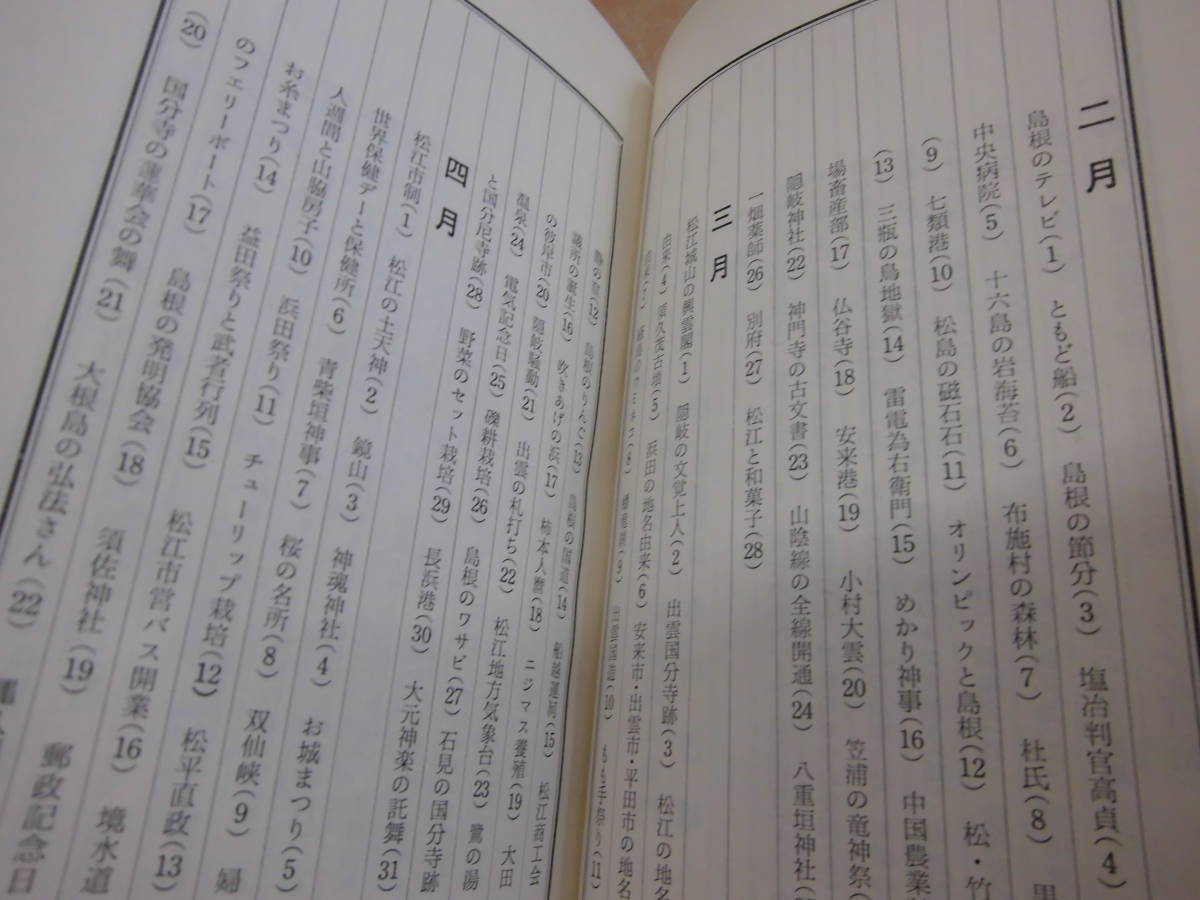 二月
島根のテレビ(1) ともど船(2) 島根の節分(3) 塩冶判官高貞(4)
中央病院(5) 十六島の岩海苔(6) 布施村の森林(7) 杜氏(8)
(9) 七類港(10) 松島の磁石石(11) オリンピックと島根(12) 松・竹
(13) 三瓶の鳥地獄(14) 雷電為右衛門(15) めかり神事(16) 中国農業
場畜産部(17) 仏谷寺(18) 安来港(19) 小村大雲(20) 笠浦の竜神祭(
隠岐神社(22) 神門寺の古文書(23) 山陰線の全線開通(24) 八重垣神社(
一畑薬師(26) 別府(27) 松江と和菓子(28)
三月
松江城山の興雲閣(1) 隠岐の文覚上人(2) 出雲国分寺跡(3) 松江の地名
由来(4) 須久茂古墳(5) 浜田の地名由来(6) 安来市・出雲市・平田市の地名
出雲国造(10) もも手祭り(11)
(12) 島根のりんご(13) 島根の国道(14) 船越運河(15) 松江商工会
議所の誕生(16) 吹きあげの浜(17) 柿本人麿(18) ニジマス養殖(19) 大田
の彼岸市(20) 隠岐騒動(21) 出雲の札打ち(22) 松江地方気象台(23) 鷺の湯
温泉(24) 電気記念日(25) 礫耕栽培(26) 島根のワサビ(27) 石見の国分寺跡
と国分尼寺跡(28) 野菜のセット栽培(29) 長浜港(30) 大元神楽の託舞(31)
四月
松江市制(1) 松江の土天神(2) 鏡山(3) 神魂神社(4) お城まつり(5)
世界保健デーと保健所(6) 青柴垣神事(7) 桜の名所(8) 双仙峡(9) 婦
人週間と山脇房子(10) 浜田祭り(11) チューリップ栽培(12) 松平直政(13)
お糸まつり(14) 益田祭りと武者行列(15) 松江市営バス開業(16) 境水道
のフェリーボート(17) 島根の発明協会(18) 須佐神社(19) 郵政記念日
(20) 国分寺の蓮華会の舞(21) 大根島の弘法さん(22)